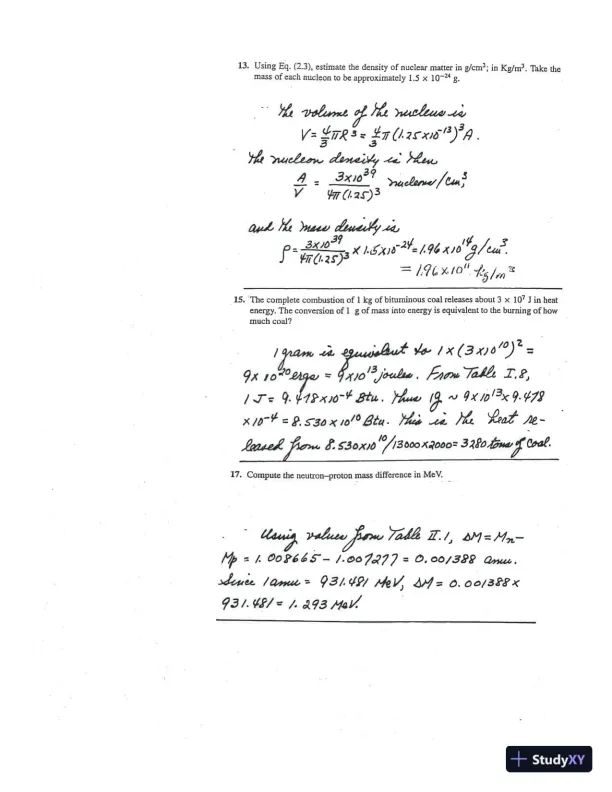 13. Using Eq. (2.3), estimate the density of nuclear matter in g/cm³; in Kg/m³. Take the
mass of each nucleon to be approximately 1.5 × 10⁻²⁴ g.
The volume of the nucleus is
V = 4/3 πR³ = 4/3 π (1.25×10⁻¹³)³A.
The nucleon density is then
A/V = 3×10³⁹ / 4π(1.25)³ nucleons/cm³,
and the mass density is
ρ = 3×10³⁹ / 4π(1.25)³ × 1.5×10⁻²⁴ = 1.96×10¹⁴ g/cm³.
= 1.96×10¹¹ kg/m³
15. The complete combustion of 1 kg of bituminous coal releases about 3 × 10⁷ J in heat
energy. The conversion of 1 g of mass into energy is equivalent to the burning of how
much coal?
1 gram is equivalent to 1×(3×10¹⁰)² =
9×10²⁰ ergs = 9×10¹³ joules. From Table I.8,
1 J = 9.478×10⁻⁴ Btu. Thus 1g ~ 9×10¹³×9.478
×10⁻⁴ = 8.530×10¹⁰ Btu. This is the heat re-
leased from 8.530×10¹⁰/13000×2000 = 3280 tons of coal.
17. Compute the neutron–proton mass difference in MeV.
Using values from Table II.1, ΔM = Mn −
Mp = 1.008665 − 1.007277 = 0.001388 amu.
Since 1 amu = 931.481 MeV, ΔM = 0.001388 ×
931.481 = 1.293 MeV.
StudyXY